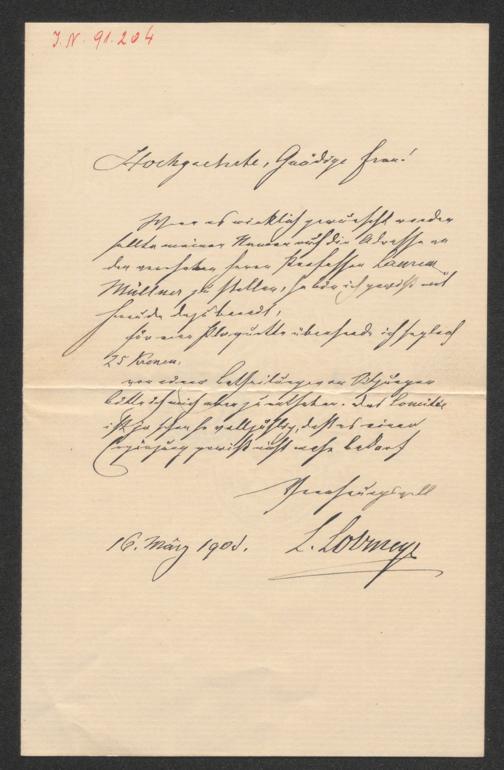 J. N. 91.204
Hochgeehrte, Gnädige Frau!
Wenn es wirklich gewünscht werden
sollte meinen Namen auf die Adresse an
den verehrten Herrn Professor Laurenz
Müllner zu stellen, so bin ich gewiß mit
Freude dazu bereit,
für eine Plaquette übersende ich sogleich
25 Kronen.
von einer Betheiligung an Sitzungen
bitte ich mich aber zu entheben. Das Comité
ist ja schon so vollzählig, daß es einer
Ergänzung gewiß nicht mehr bedarf
Hochachtungsvoll
16. März 190
L. Lobmeyr